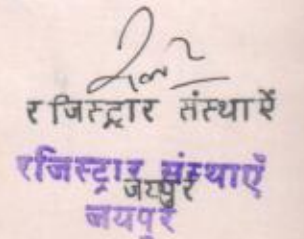 रजिस्ट्रार संस्थाऐं
रजिस्ट्रार संस्थाएँ
जयपुर
जयपुर